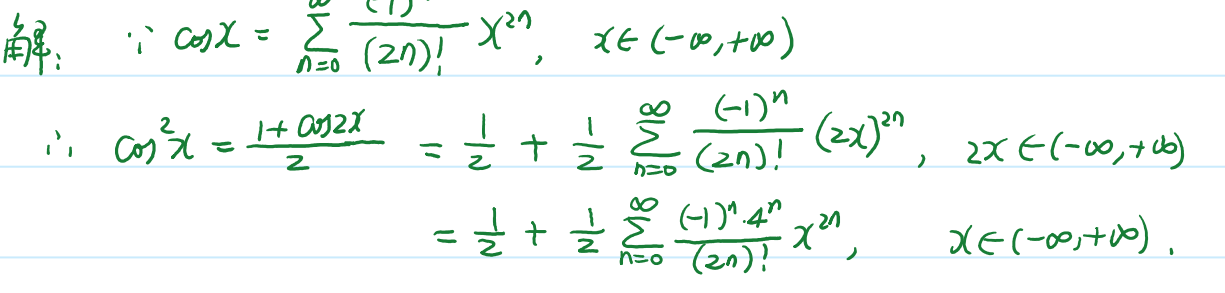 解: ∵ cosx = ∑_{n=0}^{∞} (-1)^n/(2n)! x^{2n}, x∈(-∞,+∞)
∴ cos²x = (1+cos2x)/2 = 1/2 + 1/2 ∑_{n=0}^{∞} (-1)^n/(2n)! (2x)^{2n}, 2x∈(-∞,+∞)
= 1/2 + 1/2 ∑_{n=0}^{∞} (-1)^n·4^n/(2n)! x^{2n}, x∈(-∞,+∞).